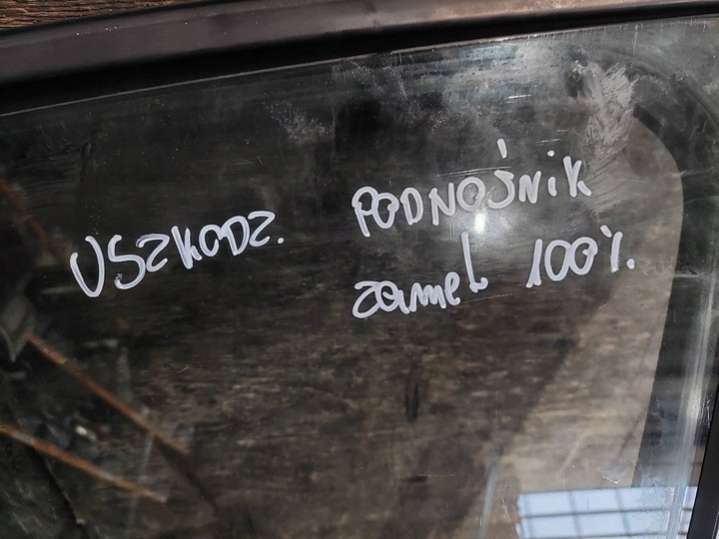 USZKODZ. PODNOŚNIK
zamek 100%.